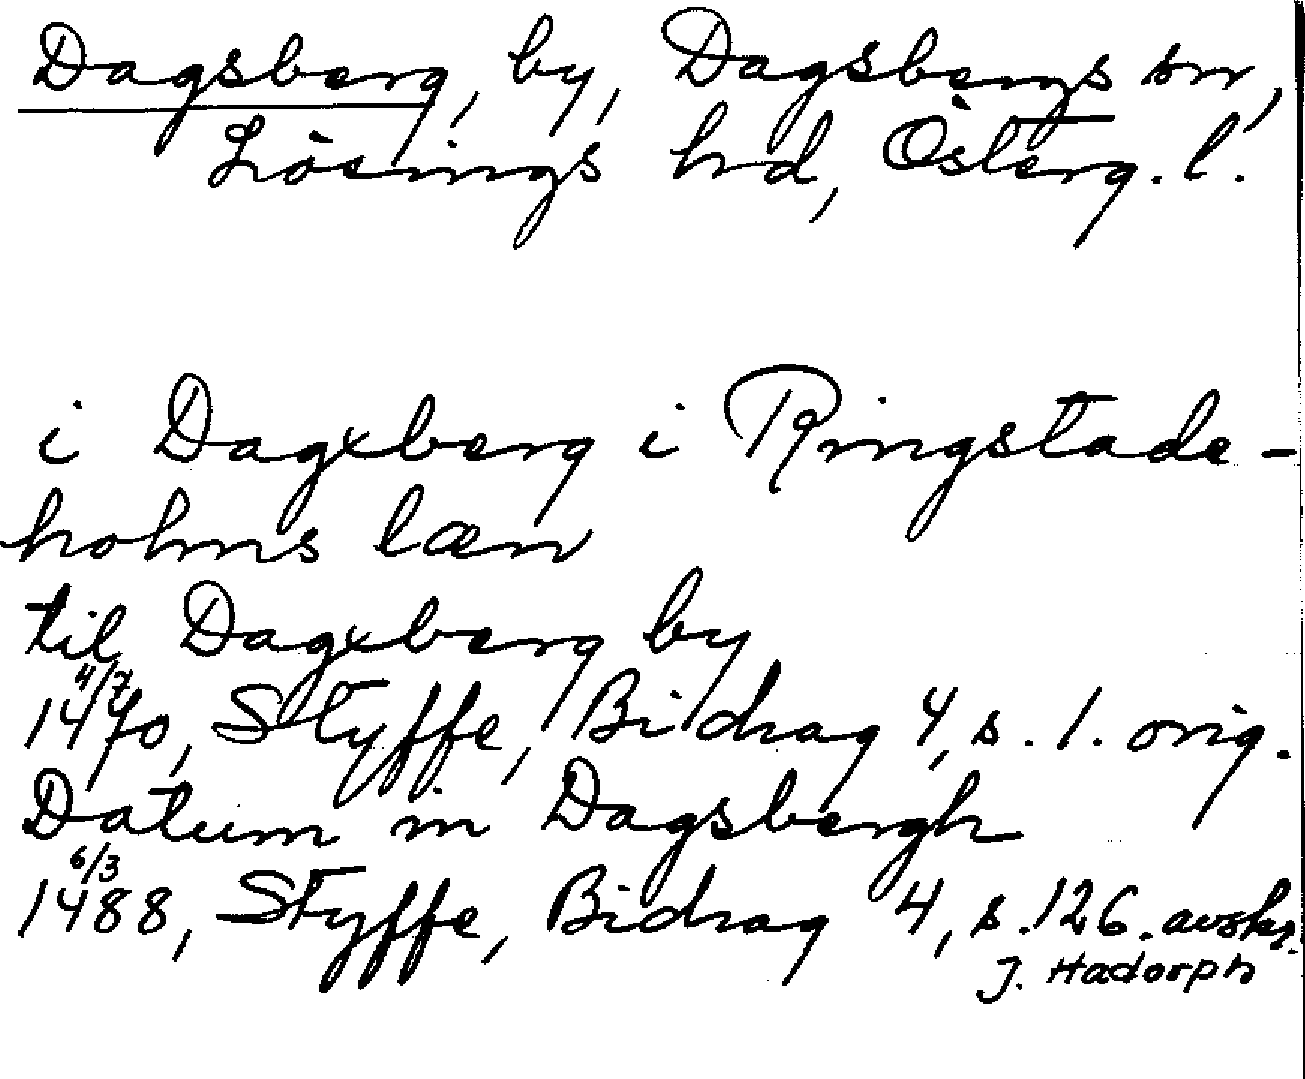 Dagsberg, by, Dagsbergs sn,
Lösings hd, Österg. l.
i Dagxberg i Ringstade-
holms læn
til Dagxberg by
4/7
1470, Styffe, Bidrag 4, s. 1. orig.
Datum in Dagsbergh
6/3
1488, Styffe, Bidrag 4, s. 126. avskr.
J. Hadorph